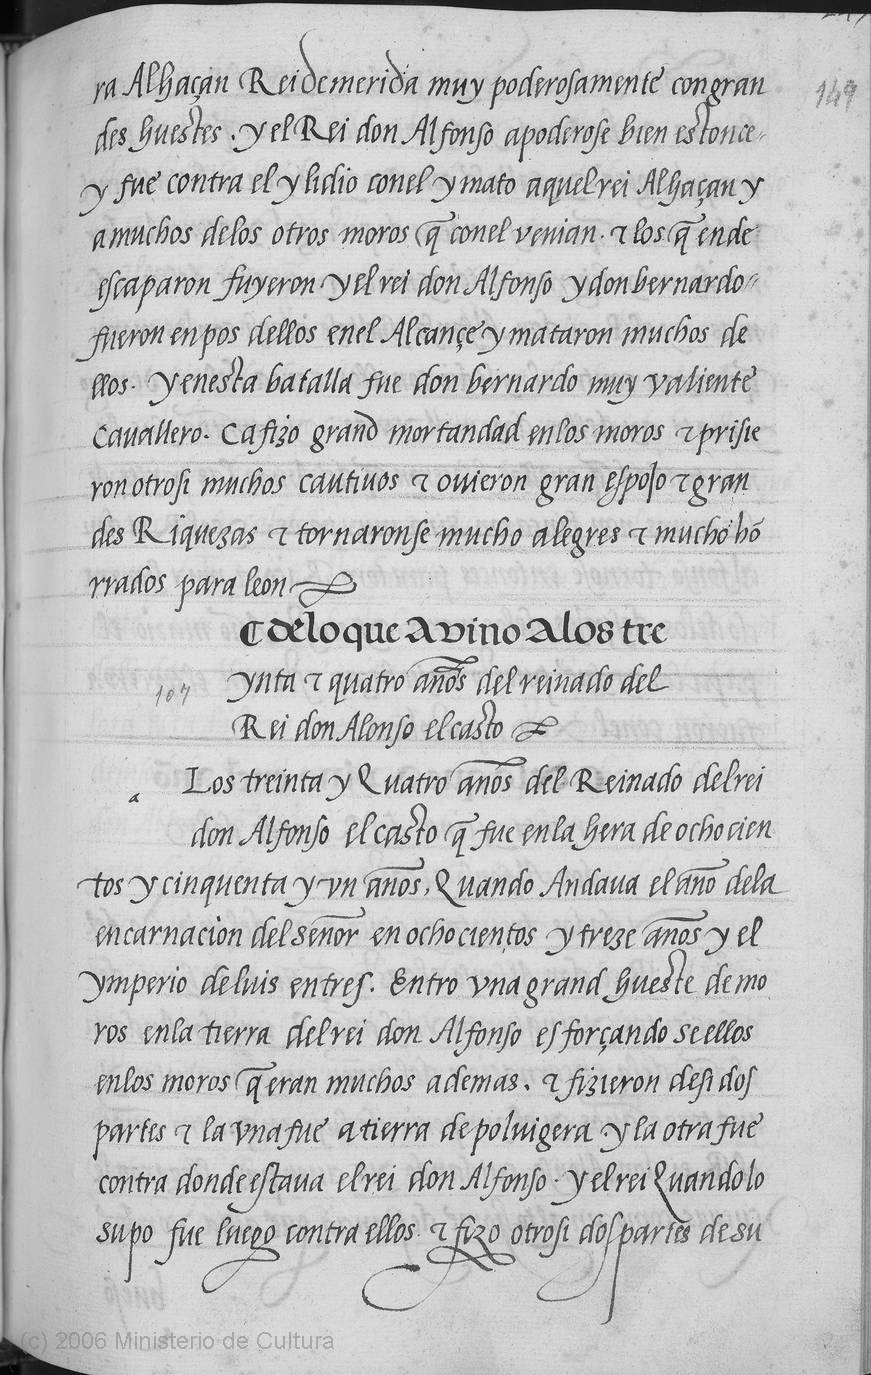 149
ra Alhaçan Rei de merida muy poderosamente con gran
des huestes . y el Rei don Alfonso apoderose bien estonce
y fue contra el y lidio conel y mato aquel rei Alhaçan y
a muchos delos otros moros q̃ conel venian . τ los q̃ ende
escaparon fuyeron . y el rei don Alfonso y don bernardo
fueron en pos dellos enel Alcançe y mataron muchos de
llos . y en esta batalla fue don bernardo muy valiente
Cavallero . Ca fizo grand mortandad en los moros τ prisie
ron otrosi muchos cautivos τ ovieron gran espojo τ gran
des Riquezas τ tornaronse mucho alegres τ mucho hõ
rrados para leon
¶ de lo que Avino Alos tre
107 ynta τ quatro años del reinado del
Rei don Alonso el casto
a Los treinta y Quatro años del Reinado del rei
don Alfonso el casto q̃ fue en la hera de ochocien
tos y cinquenta y vn años, Quando Andava el año dela
encarnacion del señor en ochocientos y treze años y el
ymperio de luis en tres . Entro vna grand hueste de mo
ros en la tierra del rei don Alfonso esforçando se ellos
en los moros q̃ eran muchos ademas . τ fizieron de si dos
partes τ la vna fue a tierra de polvigera y la otra fue
contra donde estava el rei don Alfonso . y el rei Quando lo
supo fue luego contra ellos . τ fizo otrosi dos partes de su
(c) 2006 Ministerio de Cultura